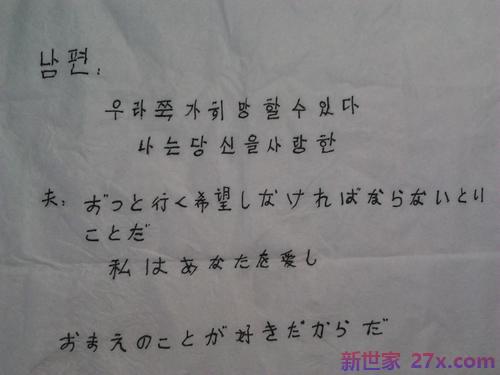 남편:
우라쪽가희망할수있다
나는당신을사랑한
夫: おっと行く希望しなければならないとり
ことだ
私はあなたを愛し
おまえのことが好きだからだ
新世家 27x.com